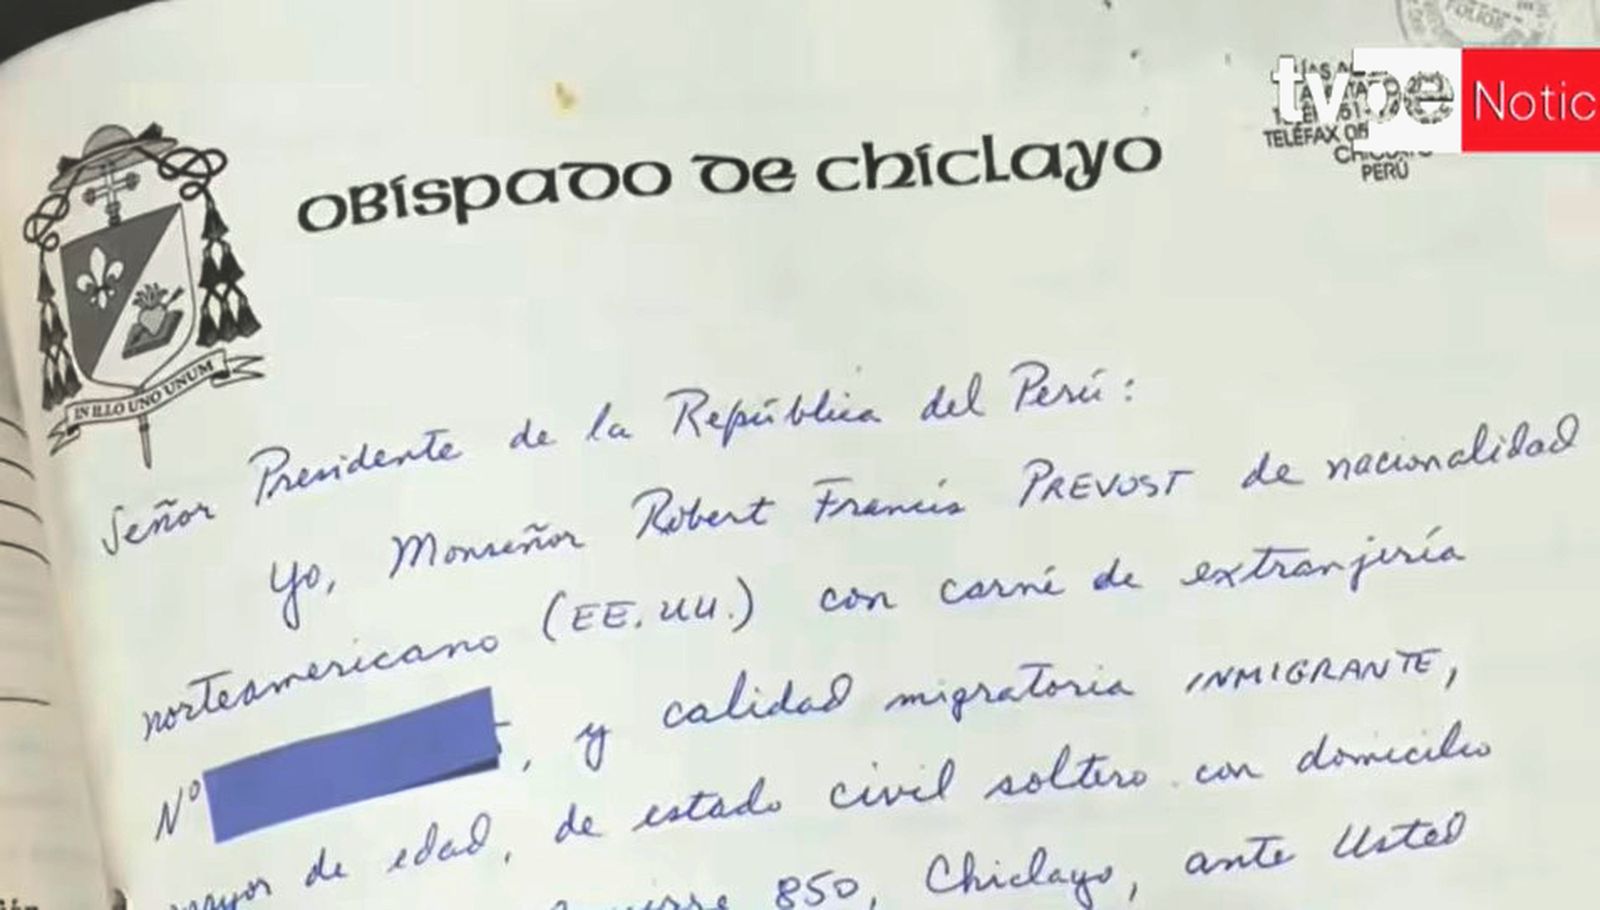 FOLIOS
tvpe Notic
TELEFAX
CHICLAYO
PERÚ
OBISPADO DE CHICLAYO
IN ILLO UNO UNUM
Señor Presidente de la República del Perú:
Yo, Monseñor Robert Francis PREVOST de nacionalidad
norteamericano (EE.UU.) con carné de extranjería
Nº , y calidad migratoria INMIGRANTE,
mayor de edad, de estado civil soltero con domicilio
850, Chiclayo, ante Usted